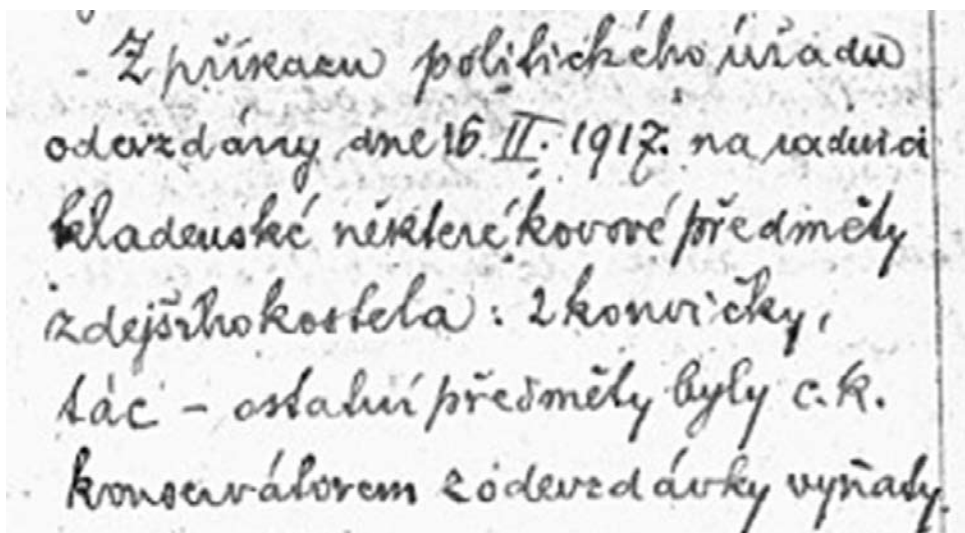 Z příkazu politického úřadu
odevzdány dne 16 II. 1917. na radnici
kladenské některé kovové předměty
zdejšího kostela : 2 konvičky,
tác – ostatní předměty byly c. k.
konservátorem z odevzdávky vyňaty.